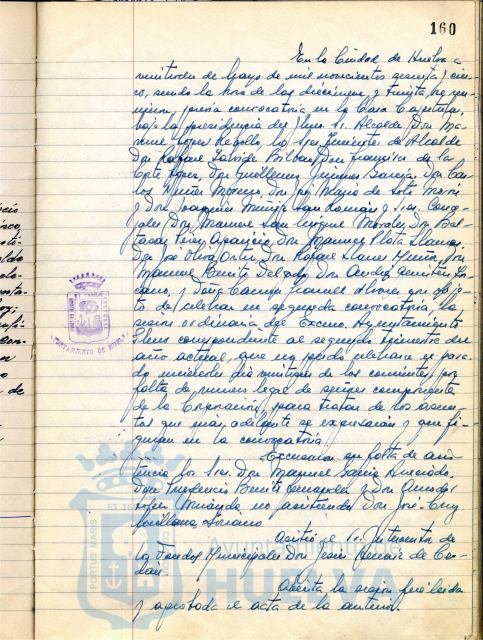 160
En la Ciudad de Huelva a
veintidos de Mayo de mil novecientos cuarenta y cin-
co, siendo la hora de las diecinueve y treinta, se reu-
nieron, previa convocatoria en la Casa Capitular,
bajo la presidencia del Ilmo. Sr. Alcalde, Don Ma-
nuel López Rebollo, los Sres. Tenientes de Alcalde
Don Rafael Bilbao, Don Francisco de la
Corte López, Don Guillermo Jiménez Don Car-
los Muñoz Moreno, Don José María de Soto
y Don Joaquín Muñiz San Román y Sres. Conce-
jales Don Manuel San Miguel Morales, Don Bal-
tasar Pérez Aparicio, Don Manuel Plata Llamas,
Don José Oliva Ortiz, Don Rafael Llanes Muñiz, Don
Manuel Benito Delgado, Don Andrés
y Doña Carmen Alvarez con obje-
to de celebrar en segunda convocatoria, la
sesión ordinaria del Excmo. Ayuntamiento
Pleno correspondiente al segundo trimestre del
año actual, que no pudo celebrarse el pasado
miércoles día de los corrientes por
falta de número legal de señores componentes
de la Corporación, para tratar de los asun-
tos que más adelante se expresarán y que fi-
guran en la convocatoria.
Excusaron su falta de asis-
tencia los Sres. Don Manuel García
Don Prudencio Benito Fernández y Don Amador
López Miranda no asistiendo Don José Cruz
Soriano
Asistió el Sr. Interventor de
los Fondos Municipales Don
Abierta la sesión fué leida
y aprobada el acta de la anterior.
AYUNTAMIENTO DE HUELVA
PORTUS MARIS ET TERRAE
HUELVA